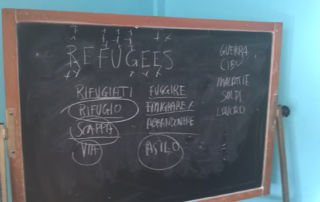 REFUGEES
RIFUGIATI FUGGIRE
RIFUGIO EMIGRARE /
SCAPPA ABBANDONARE
VIA ASILO
GUERRA
CIBO
MALATTIE
SOLDI
LAVORO